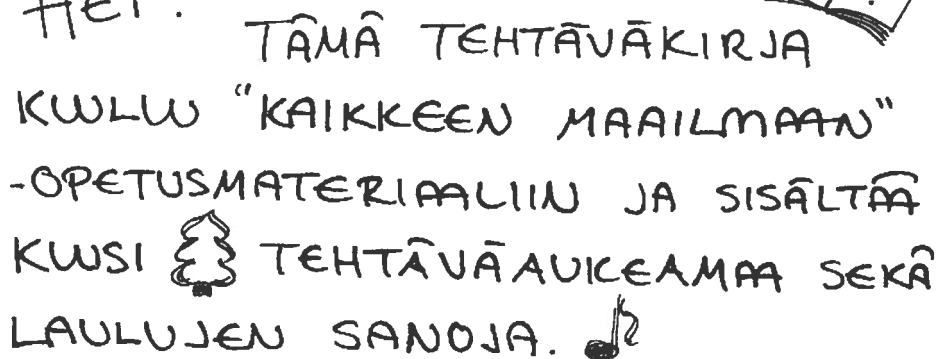 HEI.
TÄMÄ TEHTÄVÄKIRJA
KUULUU "KAIKKEEN MAAILMAAN"
-OPETUSMATERIAALIIN JA SISÄLTÄÄ
KUUSI TEHTÄVÄAUKEAMAA SEKÄ
LAULUJEN SANOJA.